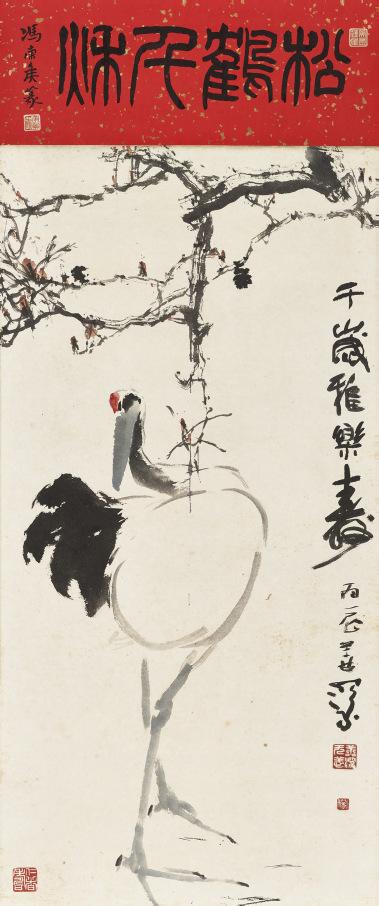 松鶴千秋
馮康侯篆
千歲雅樂壽
丙辰